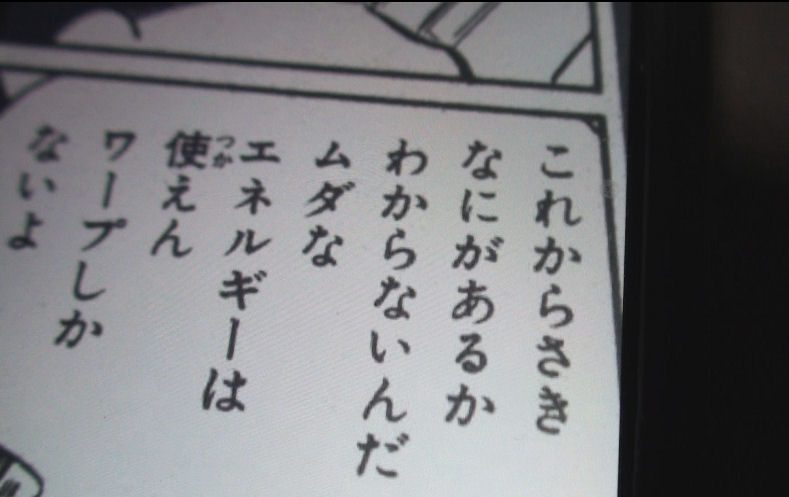 これからさき
なにがあるか
わからないんだ
ムダな
エネルギーは
使えん
つか
ワープしか
ないよ